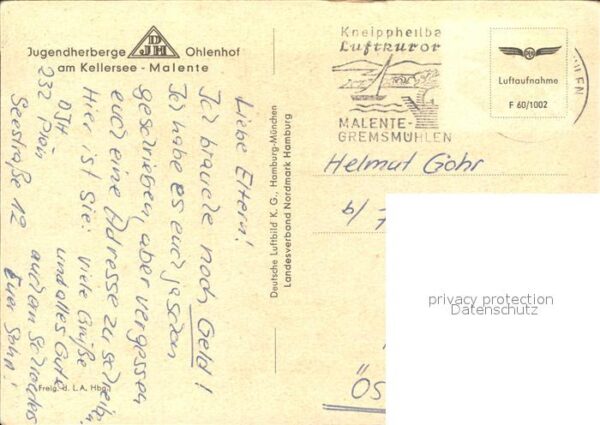 Jugendherberge DJH Ohlenhof
am Kellersee - Malente
Liebe Eltern!
Ich brauche noch Geld!
Ich habe es euch ja schon
geschrieben, aber vergessen
euch eine Adresse zu schreiben.
Hier ist Sie: Viele Grüße
DJH und alles Gute
232 Plön auch an
Seestraße 12 Euer Sohn!
Freig. d. L.A. Hbg.
Deutsche Luftbild K. G., Hamburg-München
Landesverband Nordmark Hamburg
Kneippheilba
Luftkuror
MALENTE-
GREMSMÜHLEN
Luftaufnahme
F 60/1002
Helmut Göhr
b/
ÖS
privacy protection
Datenschutz